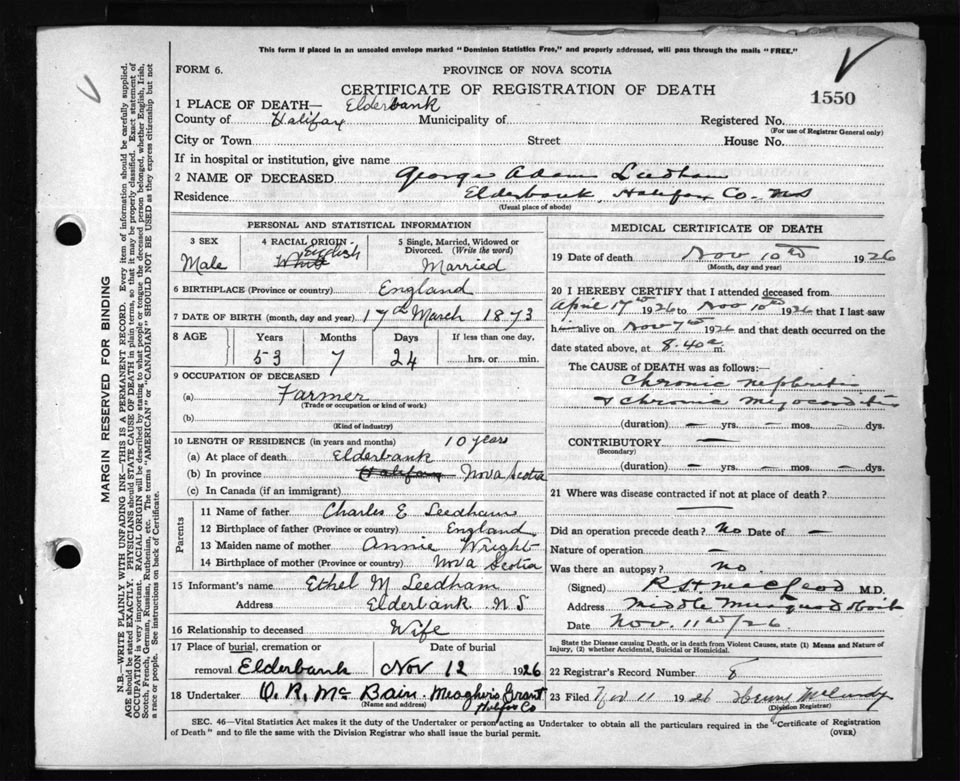 This form if placed in an unsealed envelope marked "Dominion Statistics Free," and properly addressed, will pass through the mails "FREE."
FORM 6.
PROVINCE OF NOVA SCOTIA
CERTIFICATE OF REGISTRATION OF DEATH
1550
1 PLACE OF DEATH— Elderbank
County of Halifax Municipality of Registered No.
(For use of Registrar General only)
City or Town Street House No.
If in hospital or institution, give name
2 NAME OF DECEASED George Adam Leedham
Residence Elderbank, Halifax Co. N.S
(Usual place of abode)
MARGIN RESERVED FOR BINDING
N.B.—WRITE PLAINLY WITH UNFADING INK—THIS IS A PERMANENT RECORD. Every item of information should be carefully supplied.
AGE should be stated EXACTLY. PHYSICIANS should STATE CAUSE OF DEATH in plain terms, so that it may be properly classified. Exact statement of
OCCUPATION is very important. RACIAL ORIGIN will be described by stating to what people or tongue the deceased person belonged, whether English, Irish,
Scotch, French, German, Russian, Ruthenian, etc. The terms "AMERICAN" or "CANADIAN" SHOULD NOT BE USED as they express citizenship but not
a race or people. See instructions on back of Certificate.
PERSONAL AND STATISTICAL INFORMATION
3 SEX
Male
4 RACIAL ORIGIN
English
White
5 Single, Married, Widowed or
Divorced. (Write the word)
Married
6 BIRTHPLACE (Province or country) England
7 DATE OF BIRTH (month, day and year) 17th March 1873
8 AGE Years Months Days If less than one day,
53 7 24 hrs. or min.
9 OCCUPATION OF DECEASED
(a) Farmer
(Trade or occupation or kind of work)
(b)
(Kind of industry)
10 LENGTH OF RESIDENCE (in years and months) 10 years
(a) At place of death Elderbank
(b) In province Halifax Nova Scotia
(c) In Canada (if an immigrant)
Parents
11 Name of father Charles E Leedham
12 Birthplace of father (Province or country) England
13 Maiden name of mother Annie Wright
14 Birthplace of mother (Province or country) Nova Scotia
15 Informant's name Ethel M Leedham
Address Elderbank N S
16 Relationship to deceased Wife
17 Place of burial, cremation or Date of burial
removal Elderbank Nov 12 1926
18 Undertaker O. R. McBain Meagher's Grant
(Name and address) Halifax Co
MEDICAL CERTIFICATE OF DEATH
19 Date of death Nov 10th 1926
(Month, day and year)
20 I HEREBY CERTIFY that I attended deceased from
April 17th 1926 to Nov 10th 1926 that I last saw
him alive on Nov 7th 1926 and that death occurred on the
date stated above, at 8.40 a m.
The CAUSE of DEATH was as follows:—
Chronic Nephritis
& Chronic Myocarditis
(duration) — yrs. — mos. — dys.
CONTRIBUTORY —
(Secondary)
(duration) — yrs. — mos. — dys.
21 Where was disease contracted if not at place of death?
—
Did an operation precede death? No Date of —
Nature of operation —
Was there an autopsy? No.
(Signed) R. S. H. MacLeod M.D.
Address Middle Musquodoboit
Date Nov. 11th/26
State the Disease causing Death, or in death from Violent Causes, state (1) Means and Nature of
Injury, (2) whether Accidental, Suicidal or Homicidal.
22 Registrar's Record Number 8
23 Filed Nov 11 1926 Henry McCurdy
(Division Registrar)
SEC. 46—Vital Statistics Act makes it the duty of the Undertaker or person acting as Undertaker to obtain all the particulars required in the "Certificate of Registration
of Death" and to file the same with the Division Registrar who shall issue the burial permit.
(OVER)